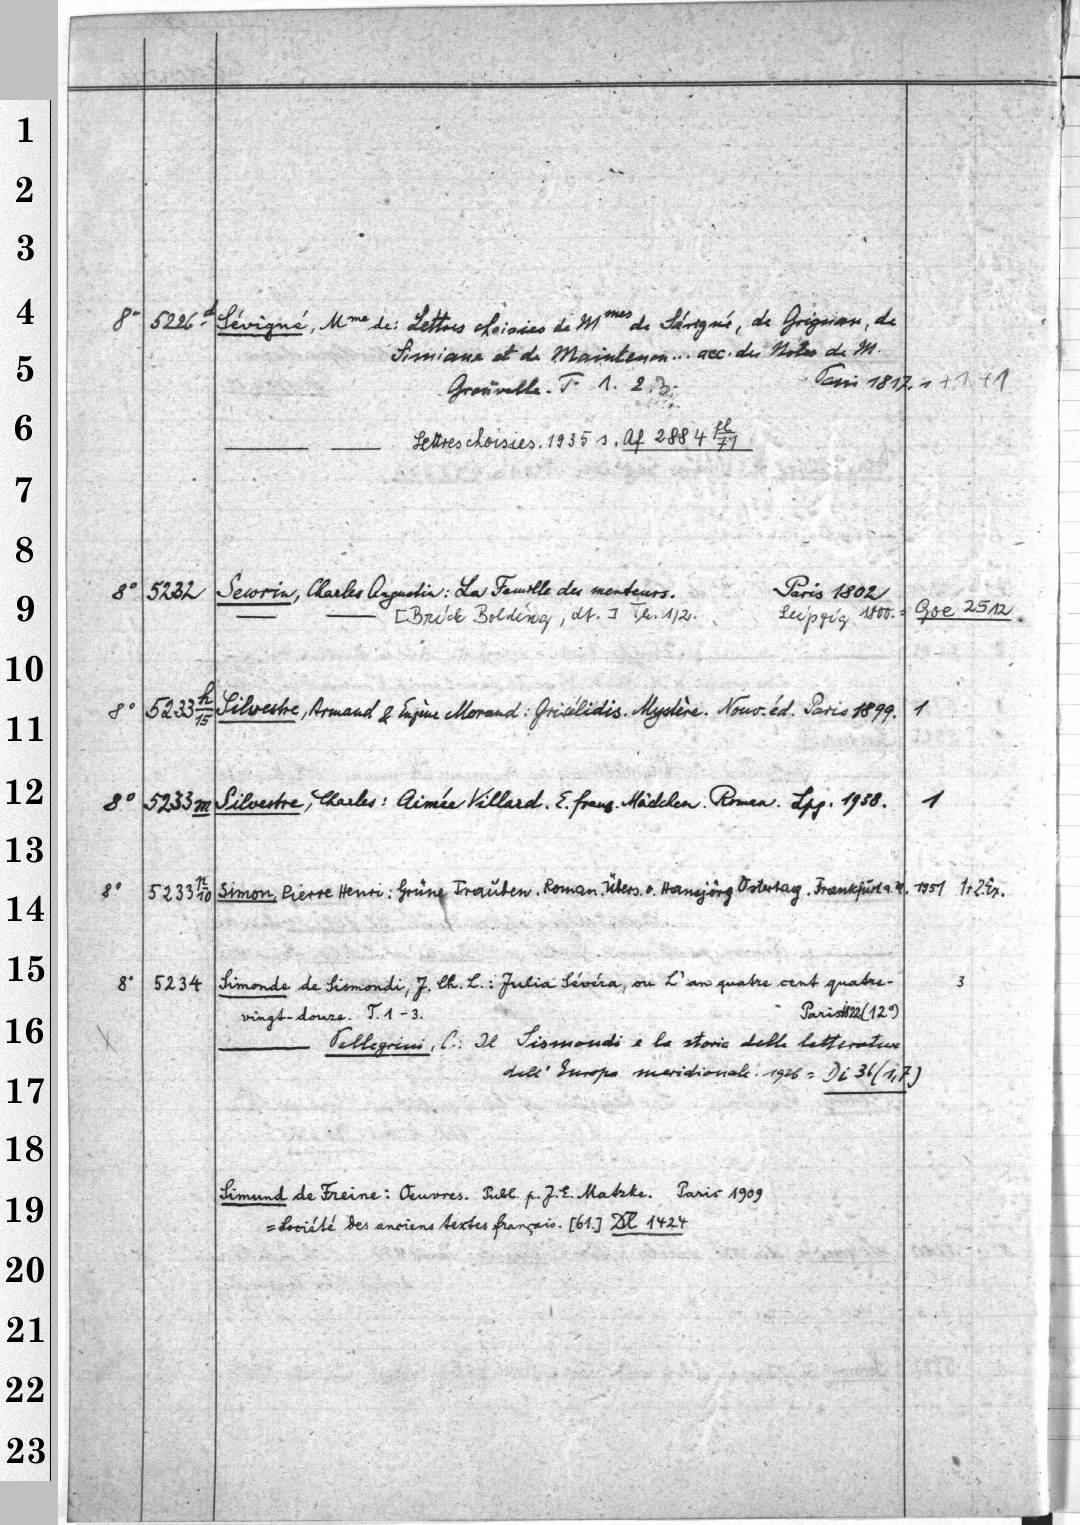 1
2
3
4
8° 5226 d Sévigné, Mme de: Lettres choisies de Mmes de Sévigné, de Grignan, de
Simiane et de Maintenon... acc. des Notes de M.
5
Grouvelle. T. 1. 2. 3. Paris 1817. 1 + 1 + 1
6
Lettres choisies. 1935 s. Af 2884 fl/71
7
8
9
8° 5232 Sewrin, Charles Augustin: La Famille des menteurs. Paris 1802
[Brick Bolding, dt.] Th. 1/2. Leipzig 1800. = Goe 2512
10
11
8° 5233 h/15 Silvestre, Armand & Eugène Morand: Grisélidis. Mystère. Nouv. éd. Paris 1899. 1
12
8° 5233 m Silvestre, Charles: Aimée Villard. E. franz. Mädchen. Roman. Lpg. 1938. 1
13
14
8° 5233 n/10 Simon, Pierre Henri: Grüne Trauben. Roman. Übers. v. Hansjörg Ostertag. Frankfurt a. M. 1951 1+2. Ex.
15
8° 5234 Simonde de Sismondi, J. Ch. L.: Julia Sévéra, ou L'an quatre cent quatre- 3
vingt-douze. T. 1-3. Paris 1822 (12°)
16
Pellegrini, C.: Il Sismondi e la storia delle letterature
17
dell' Europa meridionale. 1926 = Di 36 (1,7)
18
19
Simund de Freine: Oeuvres. Publ. p. J. E. Matzke. Paris 1909
= Société des anciens textes français. [61.] Dl 1424
20
21
22
23